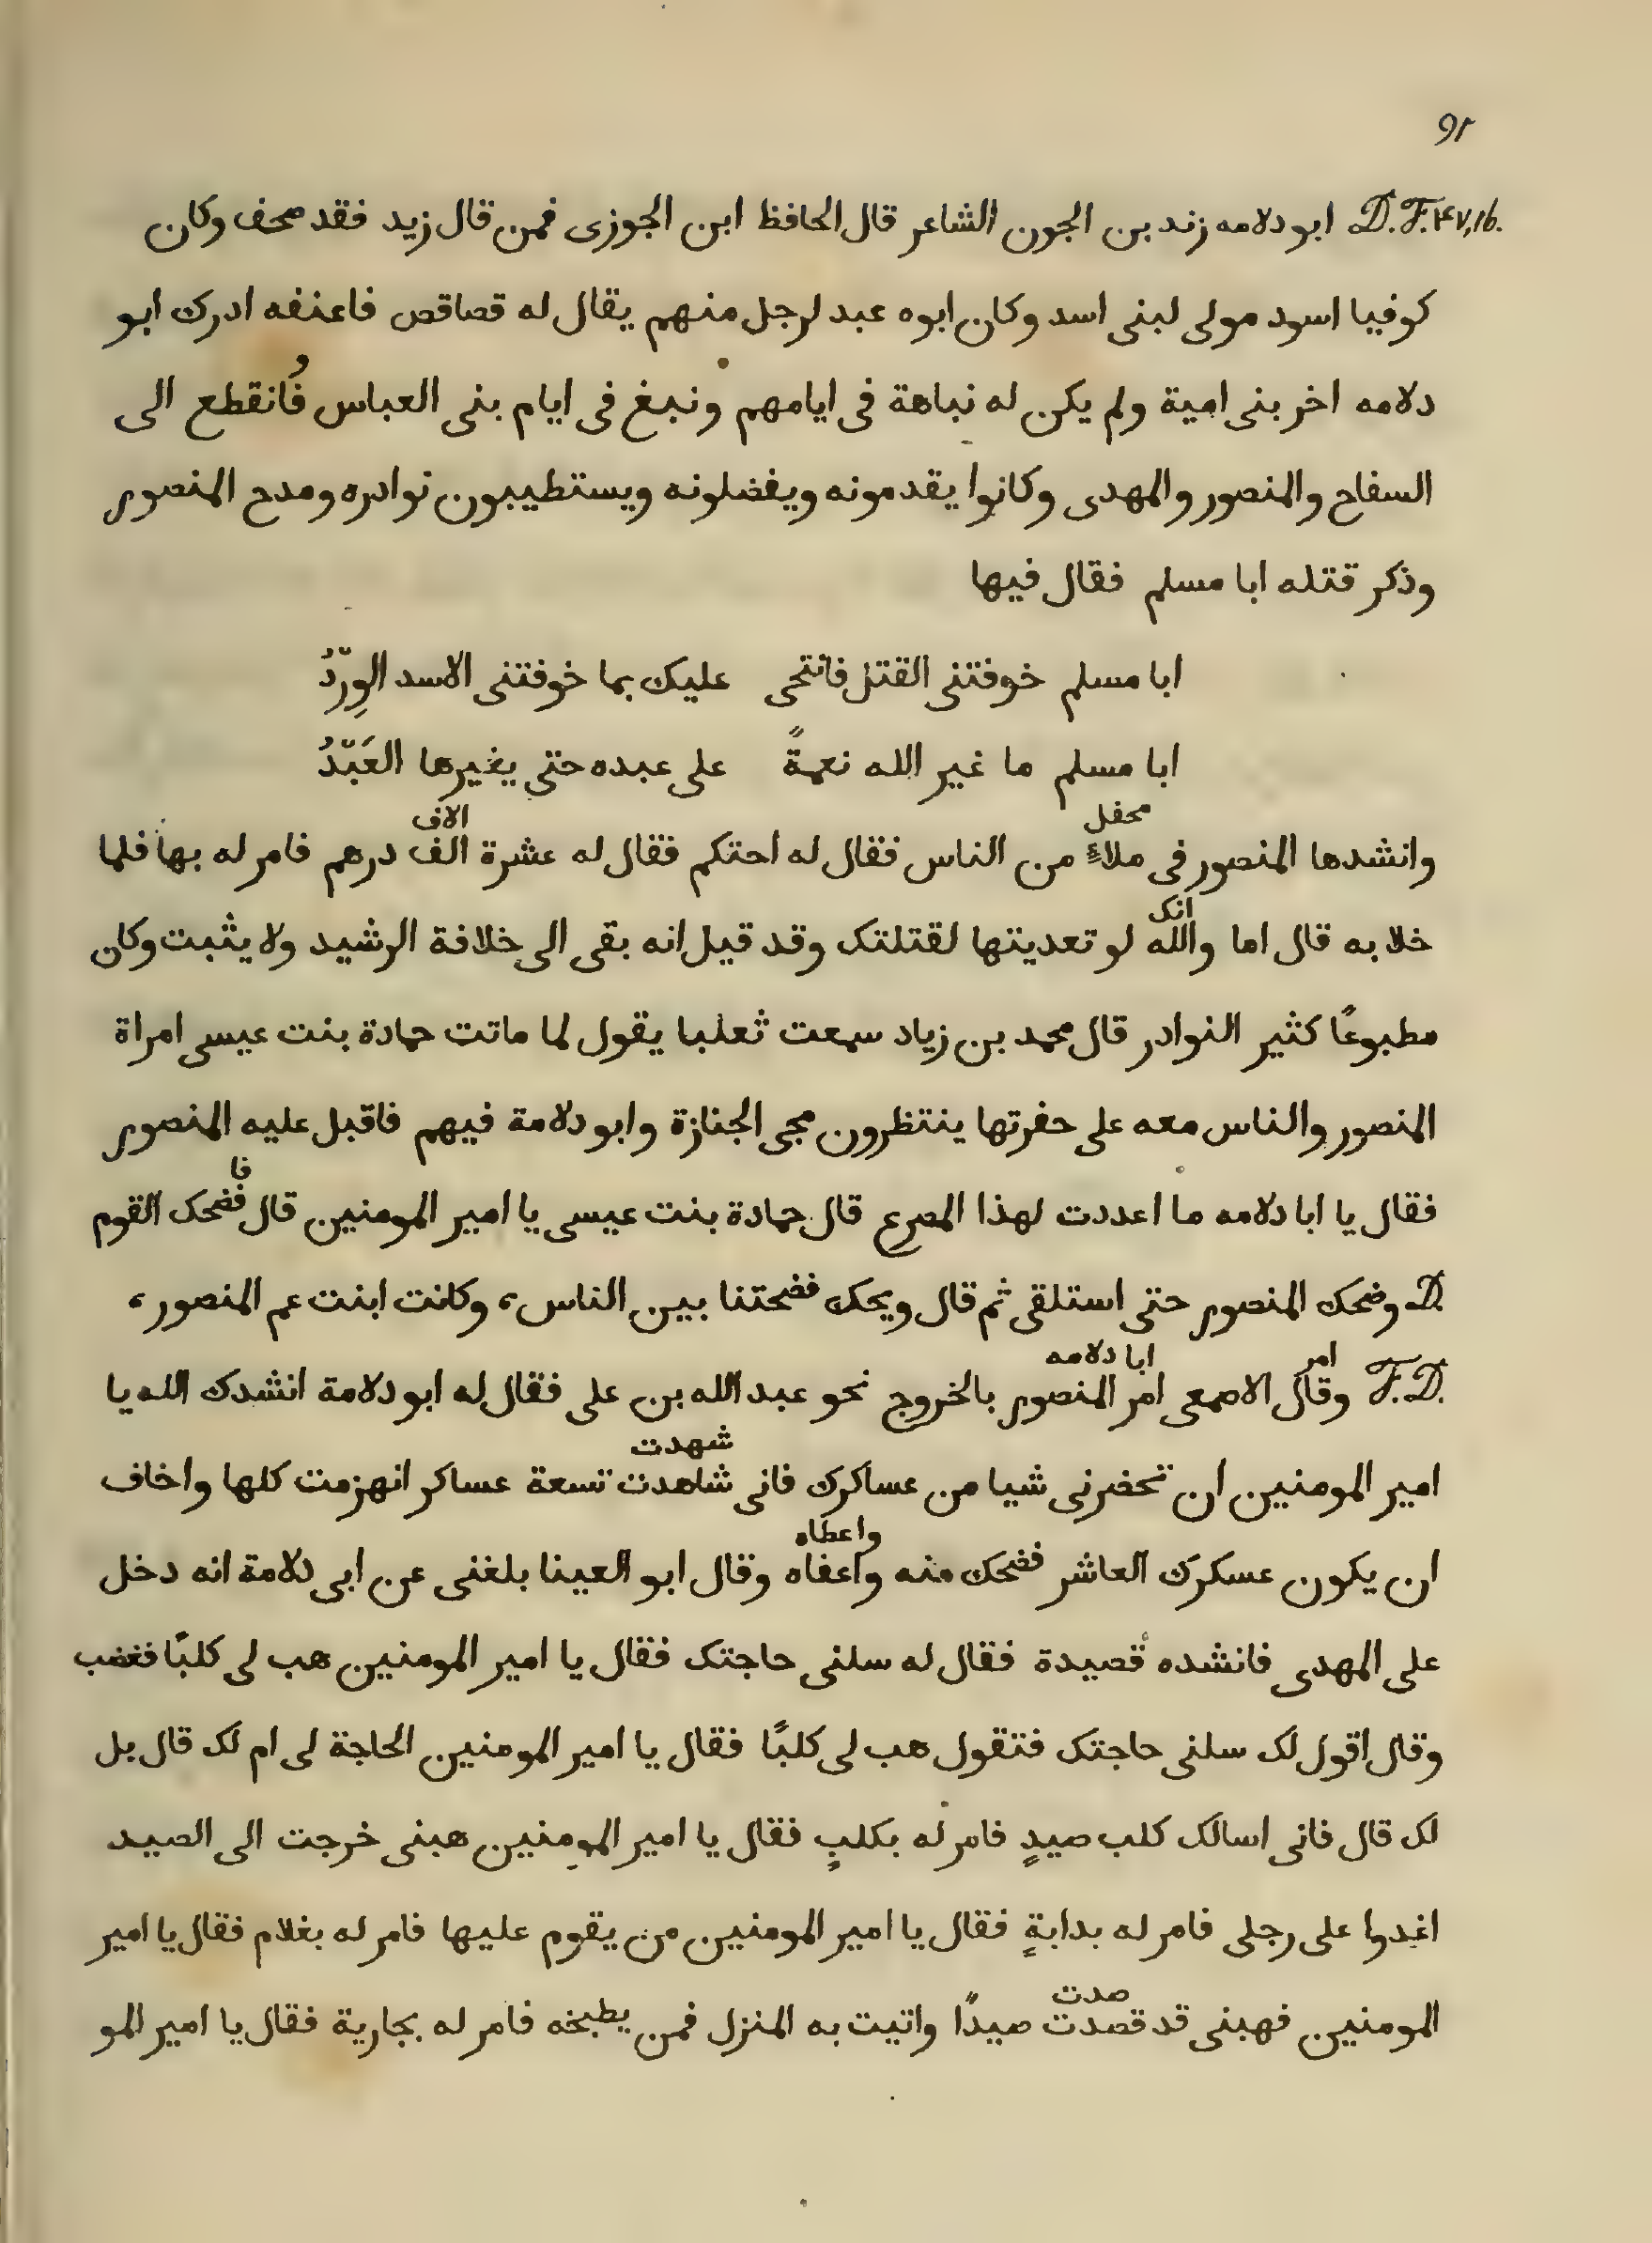 92
D. F. ۴۷,1b. ابو دلامه زند بن الجون الشاعر قال الحافظ ابن الجوزى فمن قال زيد فقد صحف وكان
كوفيا اسود مولى لبنى اسد وكان ابوه عبد لرجل منهم يقال له قصاقص فاعنفه ادرك ابو
دلامه اخر بنى امية ولم يكن له نباهة فى ايامهم ونبغ فى ايام بنى العباس فانقطع الى
و
السفاح والمنصور والمهدى وكانوا يقدمونه ويفضلونه ويستطيبون نوادره ومدح المنصور
وذكر قتله ابا مسلم فقال فيها
ابا مسلم خوفتنى القتل فانتحى عليك بما خوفتنى الاسد الوِرّدُ
ابا مسلم ما غير الله نعمةً على عبده حتى يغيرها العَبّدُ
محفل الاف
وانشدها المنصور فى ملاءٍ من الناس فقال له احتكم فقال له عشرة الف درهم فامر له بها فلما
انك
خلا به قال اما والله لو تعديتها لقتلتك وقد قيل انه بقى الى خلافة الرشيد ولا يثبت وكان
مطبوعًا كثير النوادر قال محمد بن زياد سمعت ثعلبا يقول لما ماتت حمادة بنت عيسى امراة
المنصور والناس معه على حفرتها ينتظرون مجى الجنازة وابو دلامة فيهم فاقبل عليه المنصور
فا
فقال يا ابا دلامه ما اعددت لهذا المصرع قال حمادة بنت عيسى يا امير المومنين قال ففضحك القوم
D. وضحك المنصور حتى استلقى ثم قال ويحك فضحتنا بين الناس، وكانت ابنت عم المنصور،
امر ابا دلامه
F. D. وقال الاصمعى امر المنصور بالخروج نحو عبد الله بن على فقال له ابو دلامة انشدك الله يا
شهدت
امير المومنين ان تحضرنى شيا من عساكرك فانى شاهدت تسعة عساكر انهزمت كلها واخاف
واعطاه
ان يكون عسكرك العاشر فضحك منه واعفاه وقال ابو العينا بلغنى عن ابى دلامة انه دخل
على المهدى فانشده قصيدة فقال له سلنى حاجتك فقال يا امير المومنين هب لى كلبًا فغضب
وقال اقول لك سلنى حاجتك فتقول هب لى كلبًا فقال يا امير المومنين الحاجة لى ام لك قال بل
لك قال فانى اسالك كلب صيدٍ فامر له بكلبٍ فقال يا امير المومنين هبنى خرجت الى الصيد
اغدوا على رجلى فامر له بدابةٍ فقال يا امير المومنين من يقوم عليها فامر له بغلام فقال يا امير
صدت
المومنين فهبنى قد قصدت صيدًا واتيت به المنزل فمن يطبخه فامر له بجارية فقال يا امير المو